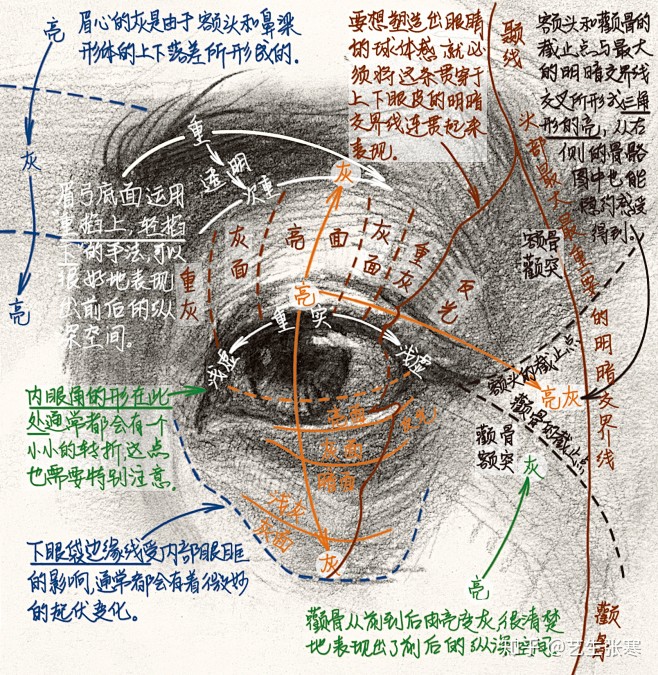 亮
眉心的灰是由于额头和鼻梁
形体的上下落差所形成的。
灰
亮
要想塑造出眼睛
的球体感,就必
须将这条贯穿于
上下眼皮的明暗
交界线连贯起来
表现。
颞线
额头和颧骨的
截止点与最大
的明暗交界线
交叉所形成三角
形的亮,从右
侧的骨骼
图中也能
隐约感受
得到。
重
透明
次重
灰
眉弓底面运用
重掐上,轻掐
下的手法,可以
很好地表现
出前后的纵
深空间。
重灰
灰面
亮面
灰面
重灰
反光
头部最大最重要的明暗交界线
额骨
颧突
亮
重
实
浅虚
浅虚
额头的截止点
亮灰
颧骨的截止点
颧骨
额突
灰
亮
内眼角的形在此
处通常都会有一个
小小的转折,这点
也需要特别注意。
亮面
灰面
暗面
浅灰
灰面
灰
下眼袋边缘线受内部眼眶
的影响,通常都会有着微妙
的起伏变化。
颧骨从前到后由亮变灰,很清楚
地表现出了前后的纵深空间。
颧骨
知乎 @艺生张寒